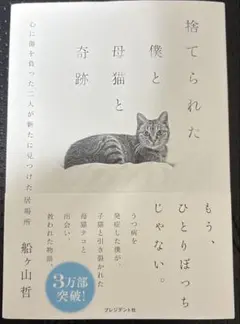 捨てられた
僕と
母猫と
奇跡
心に傷を負った二人が新たに見つけた居場所
船ヶ山哲
もう、
ひとりぼっち
じゃない。
うつ病を
発症した僕が、
子猫と引き裂かれた
母猫テコと
出会い、
救われた物語。
3万部
突破!
プレジデント社